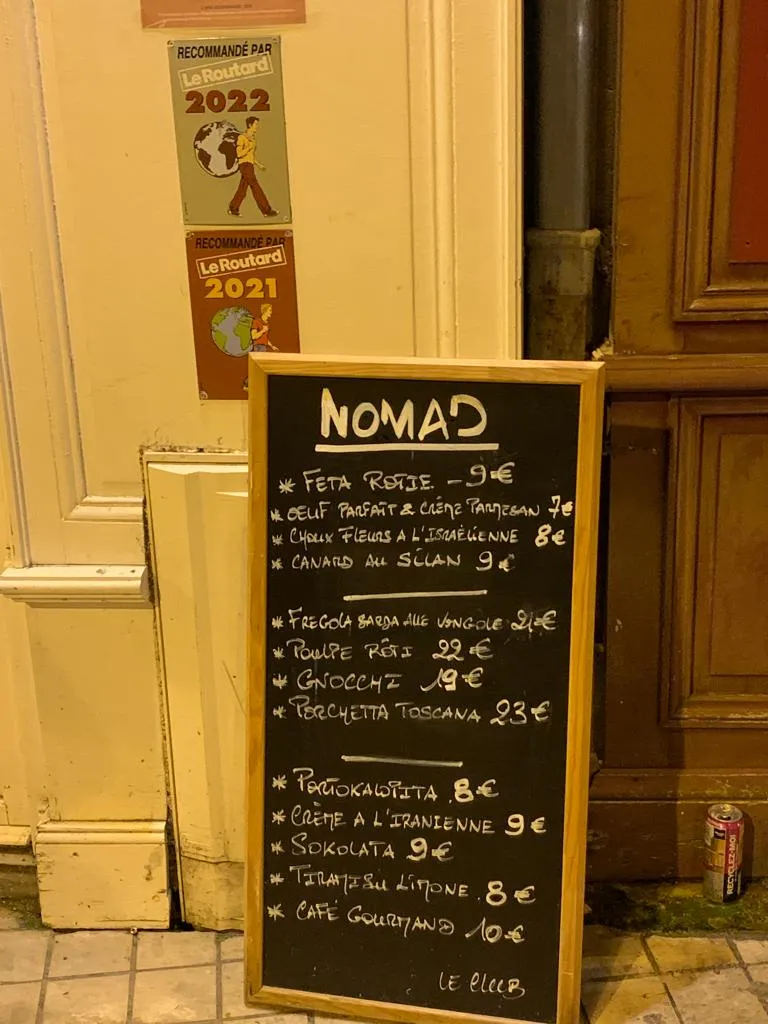 RECOMMANDÉ PAR
Le Routard
2022
RECOMMANDÉ PAR
Le Routard
2021
NOMAD
* FETA ROTIE - 9€
* OEUF PARFAIT & CRÈME PARMESAN 7€
* CHOUX FLEURS A L'ISRAËLIENNE 8€
* CANARD AU SILAN 9€
* FREGOLA SARDA ALLE VONGOLE 21€
* POULPE RÔTI 22€
* GNOCCHI 19€
* PORCHETTA TOSCANA 23€
* PORTOKALOPITA 8€
* CRÈME A L'IRANIENNE 9€
* SOKOLATA 9€
* TIRAMISU LIMONE 8€
* CAFÉ GOURMAND 10€
LE CLUB
RECYCLEZ-MOI